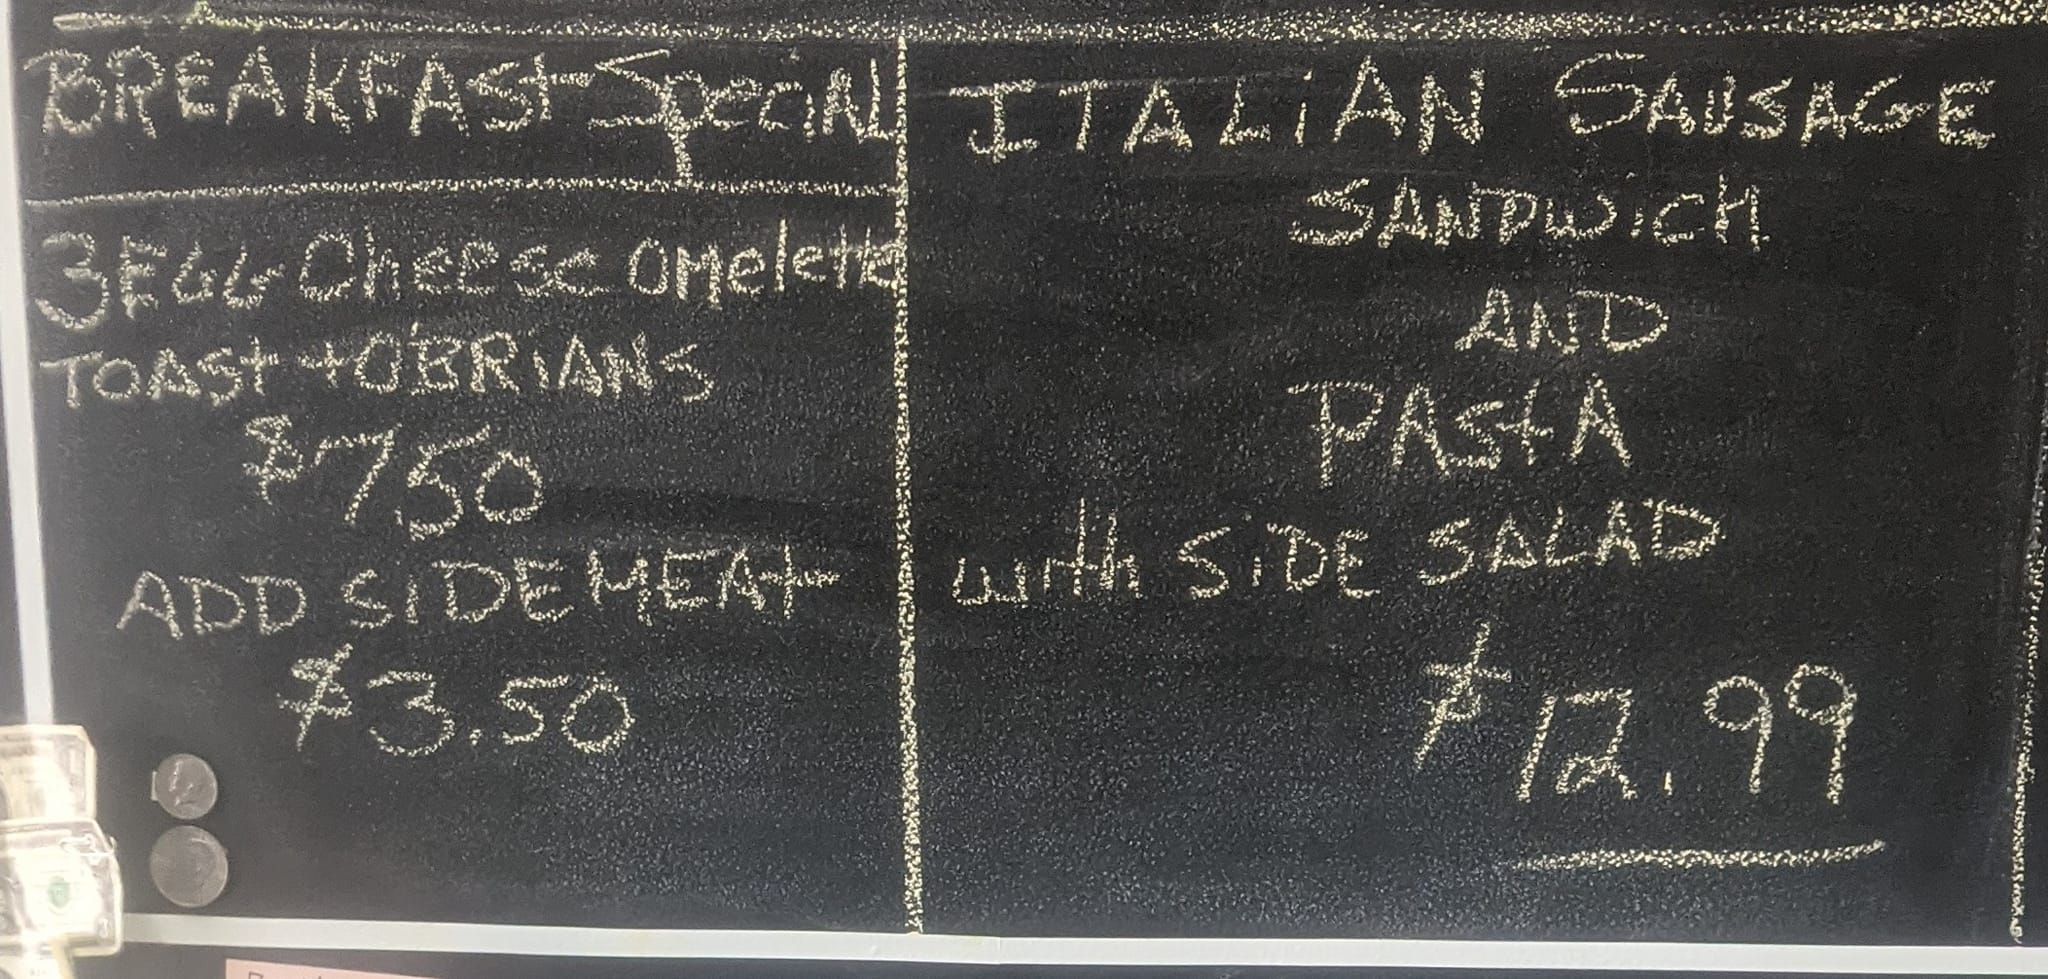 BREAKFASt SpeciAL
3 EGG Cheese OMelette
TOASt + O'BRiANS
$750
ADD SiDE MEAt
$3.50
ITALiAN SAUSAGE
SANDWicH
AND
PAStA
with SiDE SALAD
$12.99